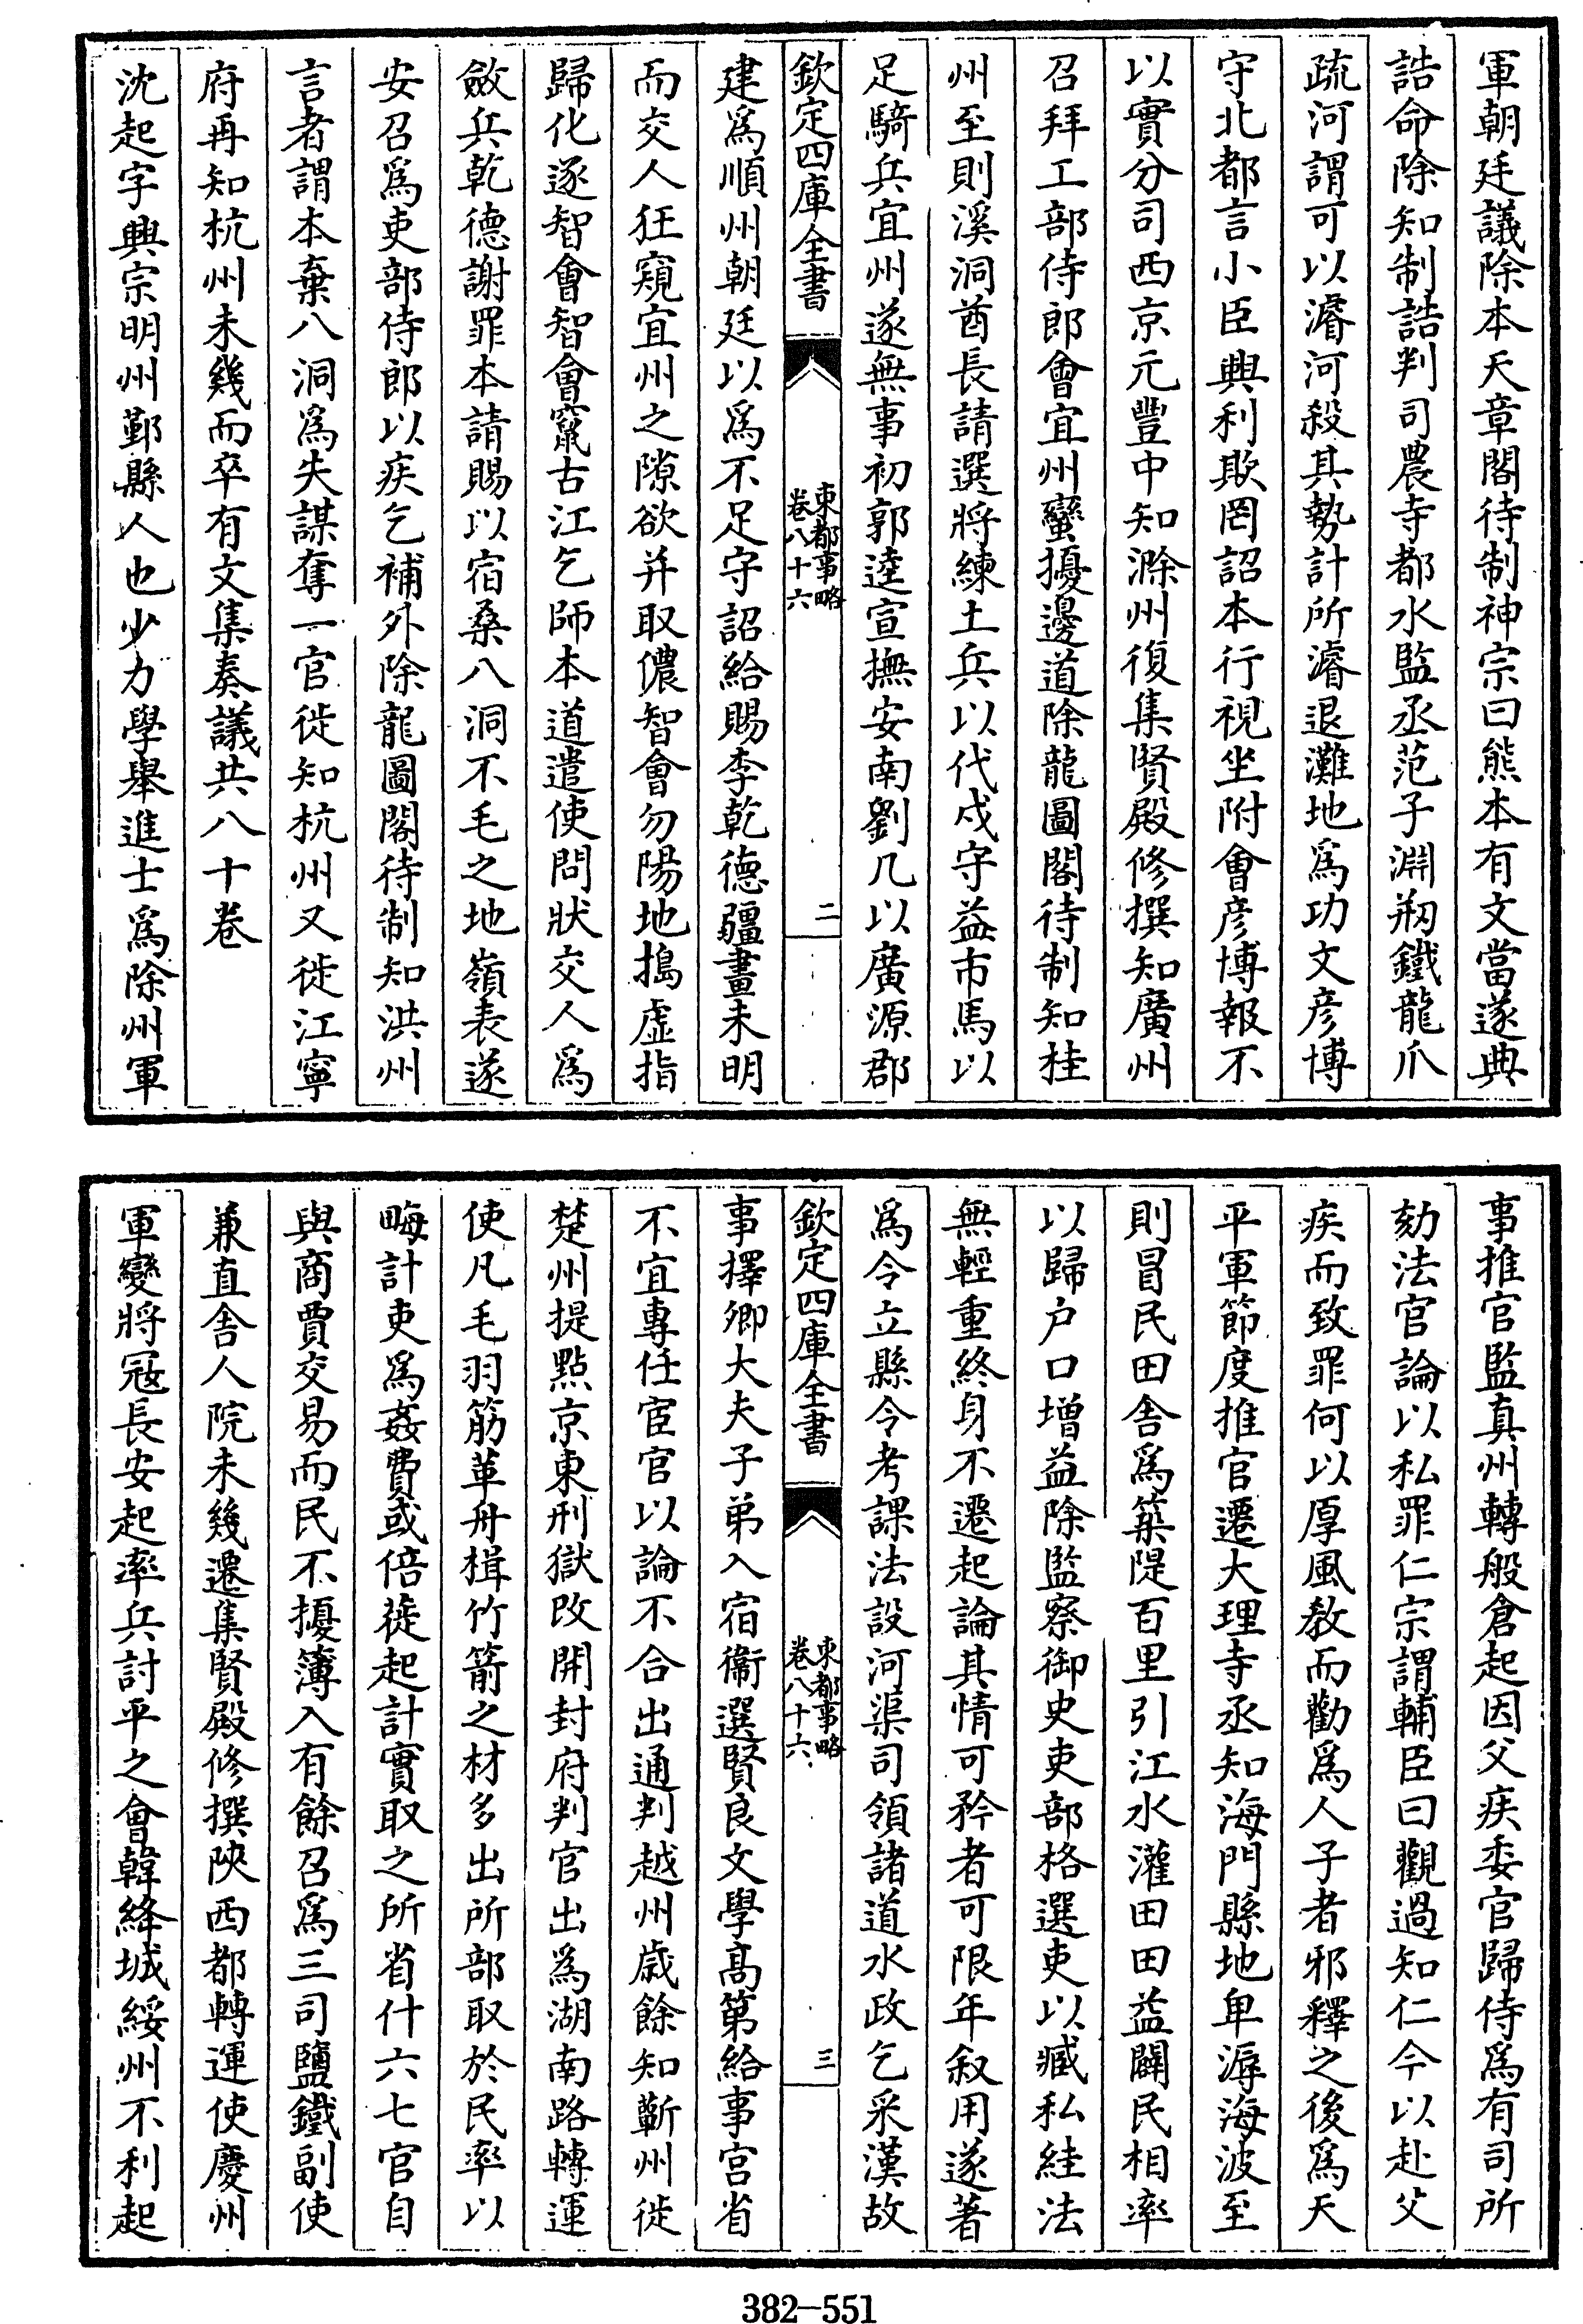 軍朝廷議除本天章閣待制神宗曰熊本有文當遂典
誥命除知制誥判司農寺都水監丞范子淵剏鐵龍爪
疏河謂可以濬河殺其勢計所濬退灘地爲功文彦博
守北都言小臣興利欺罔詔本行視坐附會彦博報不
以實分司西京元豐中知滁州復集賢殿修撰知廣州
召拜工部侍郎會宜州蠻擾邊道除龍圖閣待制知桂
州至則溪洞酋長請選將練土兵以代戍守益市馬以
足騎兵宜州遂無事初郭逵宣撫安南劉几以廣源郡
欽定四庫全書
東都事略
卷八十六
二
建爲順州朝廷以爲不足守詔給賜李乾德疆畫未明
而交人狂窺宜州之隙欲并取儂智會勿陽地搗虚指
歸化遂智會智會竄古江乞師本道遣使問狀交人爲
斂兵乾德謝罪本請賜以宿桑八洞不毛之地嶺表遂
安召爲吏部侍郎以疾乞補外除龍圖閣待制知洪州
言者謂本棄八洞爲失謀奪一官徙知杭州又徙江寧
府再知杭州未幾而卒有文集奏議共八十卷
沈起字興宗明州鄞縣人也少力學舉進士爲除州軍
事推官監真州轉般倉起因父疾委官歸侍爲有司所
劾法官論以私罪仁宗謂輔臣曰觀過知仁今以赴父
疾而致罪何以厚風教而勸爲人子者邪釋之後爲天
平軍節度推官遷大理寺丞知海門縣地卑潯海波至
則冒民田舍爲築隄百里引江水灌田田益闢民相率
以歸户口增益除監察御史吏部格選吏以贓私絓法
無輕重終身不遷起論其情可矜者可限年叙用遂著
爲令立縣令考課法設河渠司領諸道水政乞采漢故
欽定四庫全書
東都事略
卷八十六
三
事擇卿大夫子弟入宿衞選賢良文學高第給事宫省
不宜專任宦官以論不合出通判越州歳餘知蘄州徙
楚州提點京東刑獄改開封府判官出爲湖南路轉運
使凡毛羽筋革舟楫竹箭之材多出所部取於民率以
晦計吏爲姦費或倍蓰起計實取之所省什六七官自
與商賈交易而民不擾簿入有餘召爲三司鹽鐵副使
兼直舍人院未幾遷集賢殿修撰陜西都轉運使慶州
軍變將寇長安起率兵討平之會韓絳城綏州不利起
382-551